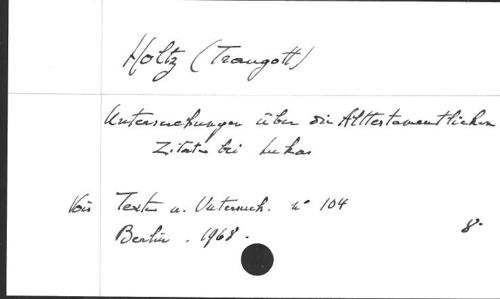 Holtz (Traugott)
Untersuchungen über die Alttestamentlichen
Zitate bei Lukas
Vois Texte u. Untersuch. n° 104
Berlin . 1968 . 8°